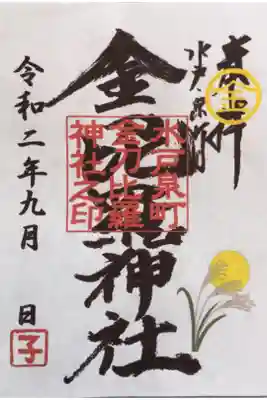 奉拝
水戸泉町
金
金刀比羅神社
水戸泉町
金刀比羅
神社之印
令和二年九月 日
子